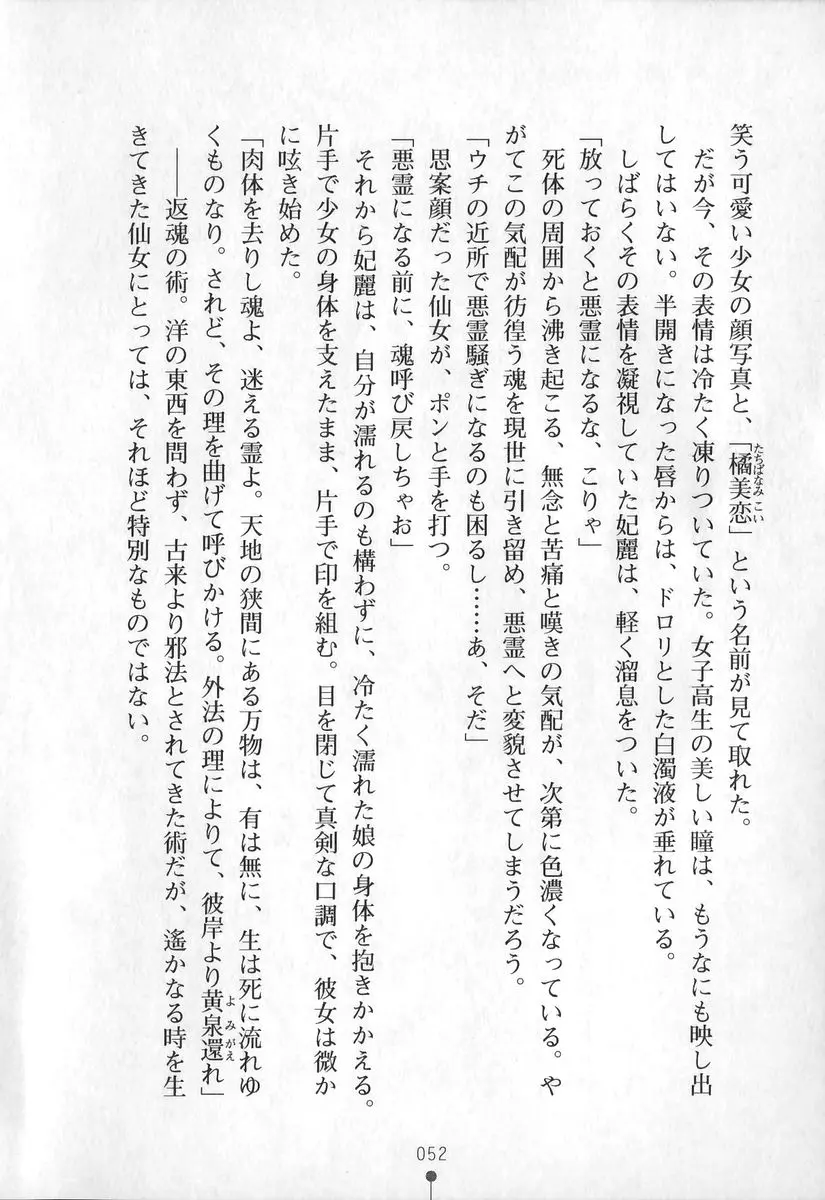 笑う可愛い少女の顔写真と、「橘美恋」という名前が見て取れた。
だが今、その表情は冷たく凍りついていた。女子高生の美しい瞳は、もうなにも映し出
してはいない。半開きになった唇からは、ドロリとした白濁液が垂れている。
しばらくその表情を凝視していた妃麗は、軽く溜息をついた。
「放っておくと悪霊になるな、こりゃ」
死体の周囲から沸き起こる、無念と苦痛と嘆きの気配が、次第に色濃くなっている。や
がてこの気配が彷徨う魂を現世に引き留め、悪霊へと変貌させてしまうだろう。
「ウチの近所で悪霊騒ぎになるのも困るし……あ、そだ」
思案顔だった仙女が、ポンと手を打つ。
「悪霊になる前に、魂呼び戻しちゃお」
それから妃麗は、自分が濡れるのも構わずに、冷たく濡れた娘の身体を抱きかかえる。
片手で少女の身体を支えたまま、片手で印を組む。目を閉じて真剣な口調で、彼女は微か
に呟き始めた。
「肉体を去りし魂よ、迷える霊よ。天地の狭間にある万物は、有は無に、生は死に流れゆ
くものなり。されど、その理を曲げて呼びかける。外法の理によりて、彼岸より黄泉還れ」
――返魂の術。洋の東西を問わず、古来より邪法とされてきた術だが、遙かなる時を生
きてきた仙女にとっては、それほど特別なものではない。
たちばなみ こい
よみがえ
052